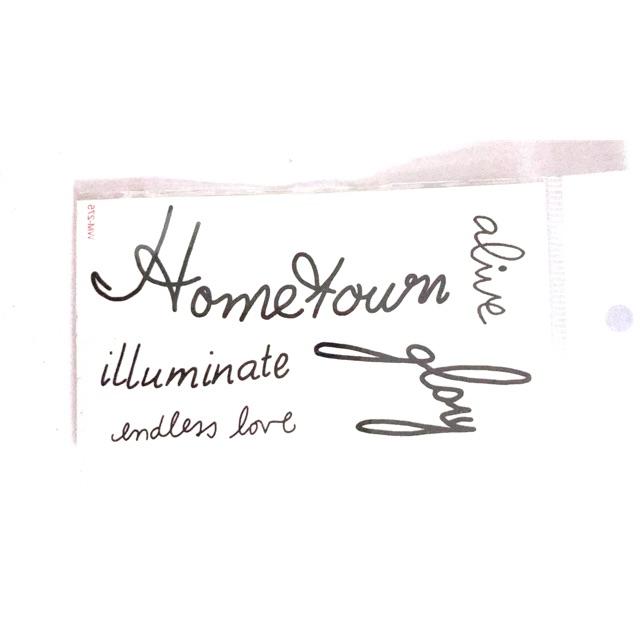 Hometown
alive
illuminate
glory
endless love